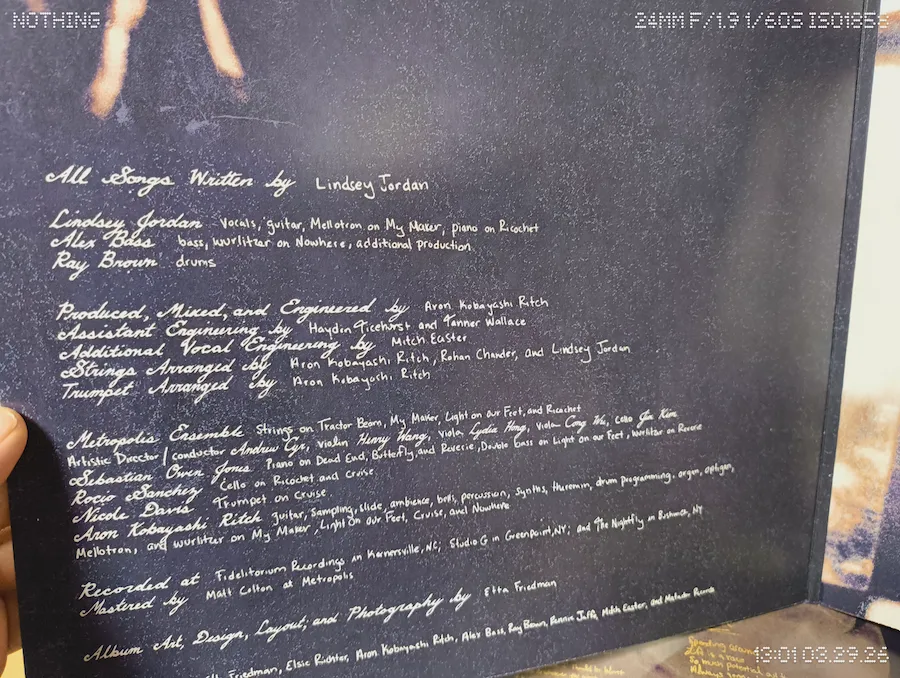 NOTHING
24MM F/1.9 1/60S ISO1856
All Songs Written by Lindsey Jordan
Lindsey Jordan vocals, guitar, Mellotron on My Maker, piano on Ricochet
Alex Bass bass, wurlitzer on Nowhere, additional production
Ray Brown drums
Produced, Mixed, and Engineered by Aron Kobayashi Ritch
Assistant Engineering by Haydin Ticehurst and Tanner Wallace
Additional Vocal Engineering by Mitch Easter
Strings Arranged by Aron Kobayashi Ritch, Rohan Chander, and Lindsey Jordan
Trumpet Arranged by Aron Kobayashi Ritch
Metropolis Ensemble Strings on Tractor Beam, My Maker, Light on our Feet, and Ricochet
Artistic Director / conductor Andrew Cyr, violin Henry Wang, viola Lydia Hong, viola Cong Wu, cello Jia Kim
Sebastian Owen Jones Piano on Dead End, Butterfly, and Reverie, Double bass on Light on our Feet, wurlitzer on Reverie
Rocio Sanchez Cello on Ricochet and Cruise
Nicole Davis Trumpet on Cruise
Aron Kobayashi Ritch guitar, sampling, slide, ambience, bells, percussion, synths, theremin, drum programming, organ, optigan,
Mellotron, and wurlitzer on My Maker, Light on our Feet, Cruise, and Nowhere
Recorded at Fidelitorium Recordings in Kernersville, NC; Studio G in Greenpoint, NY; and The Nightfly in Bushwick, NY
Mastered by Matt Colton at Metropolis
Album Art, Design, Layout, and Photography by Etta Friedman
Friedman, Elsie Richter, Aron Kobayashi Ritch, Alex Bass, Ray Brown, Rennie Jaffe, Mitch Easter, and
Spending
LA is a
To much potential
Always
13:01 03.29.26